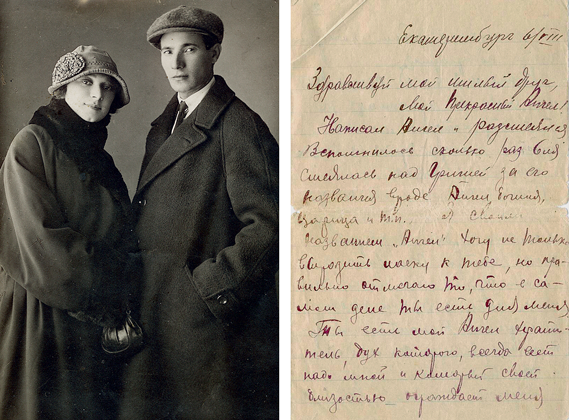 Екатеринбург 6/VIII
Здравствуй мой милый друг,
мой прекрасный Ангел!
Написал Ангел и рассмеялся
Вспомнилось сколько раз Оля
смеялась над Гришей за его
названия вроде Ангел, богиня,
царица и т.п. А своим
названием "Ангел" хочу не только
выразить ласку к тебе, но пра-
вильно отмечаю то, что в са-
мом деле ты есть для меня
Ты есть мой Ангел храни-
тель, дух которого, всегда
надо мной и который своей
близостью ограждает меня